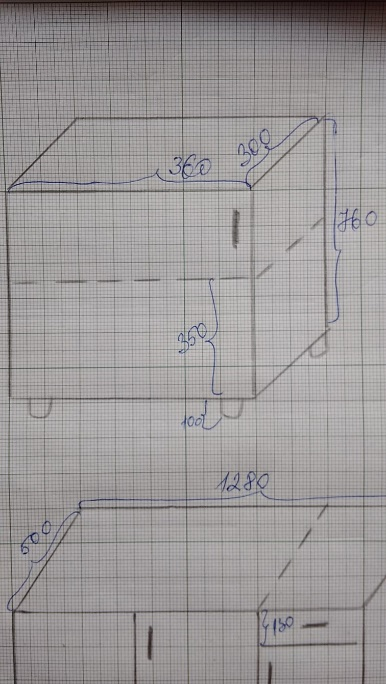 360
300
760
350
100
1280
600
180